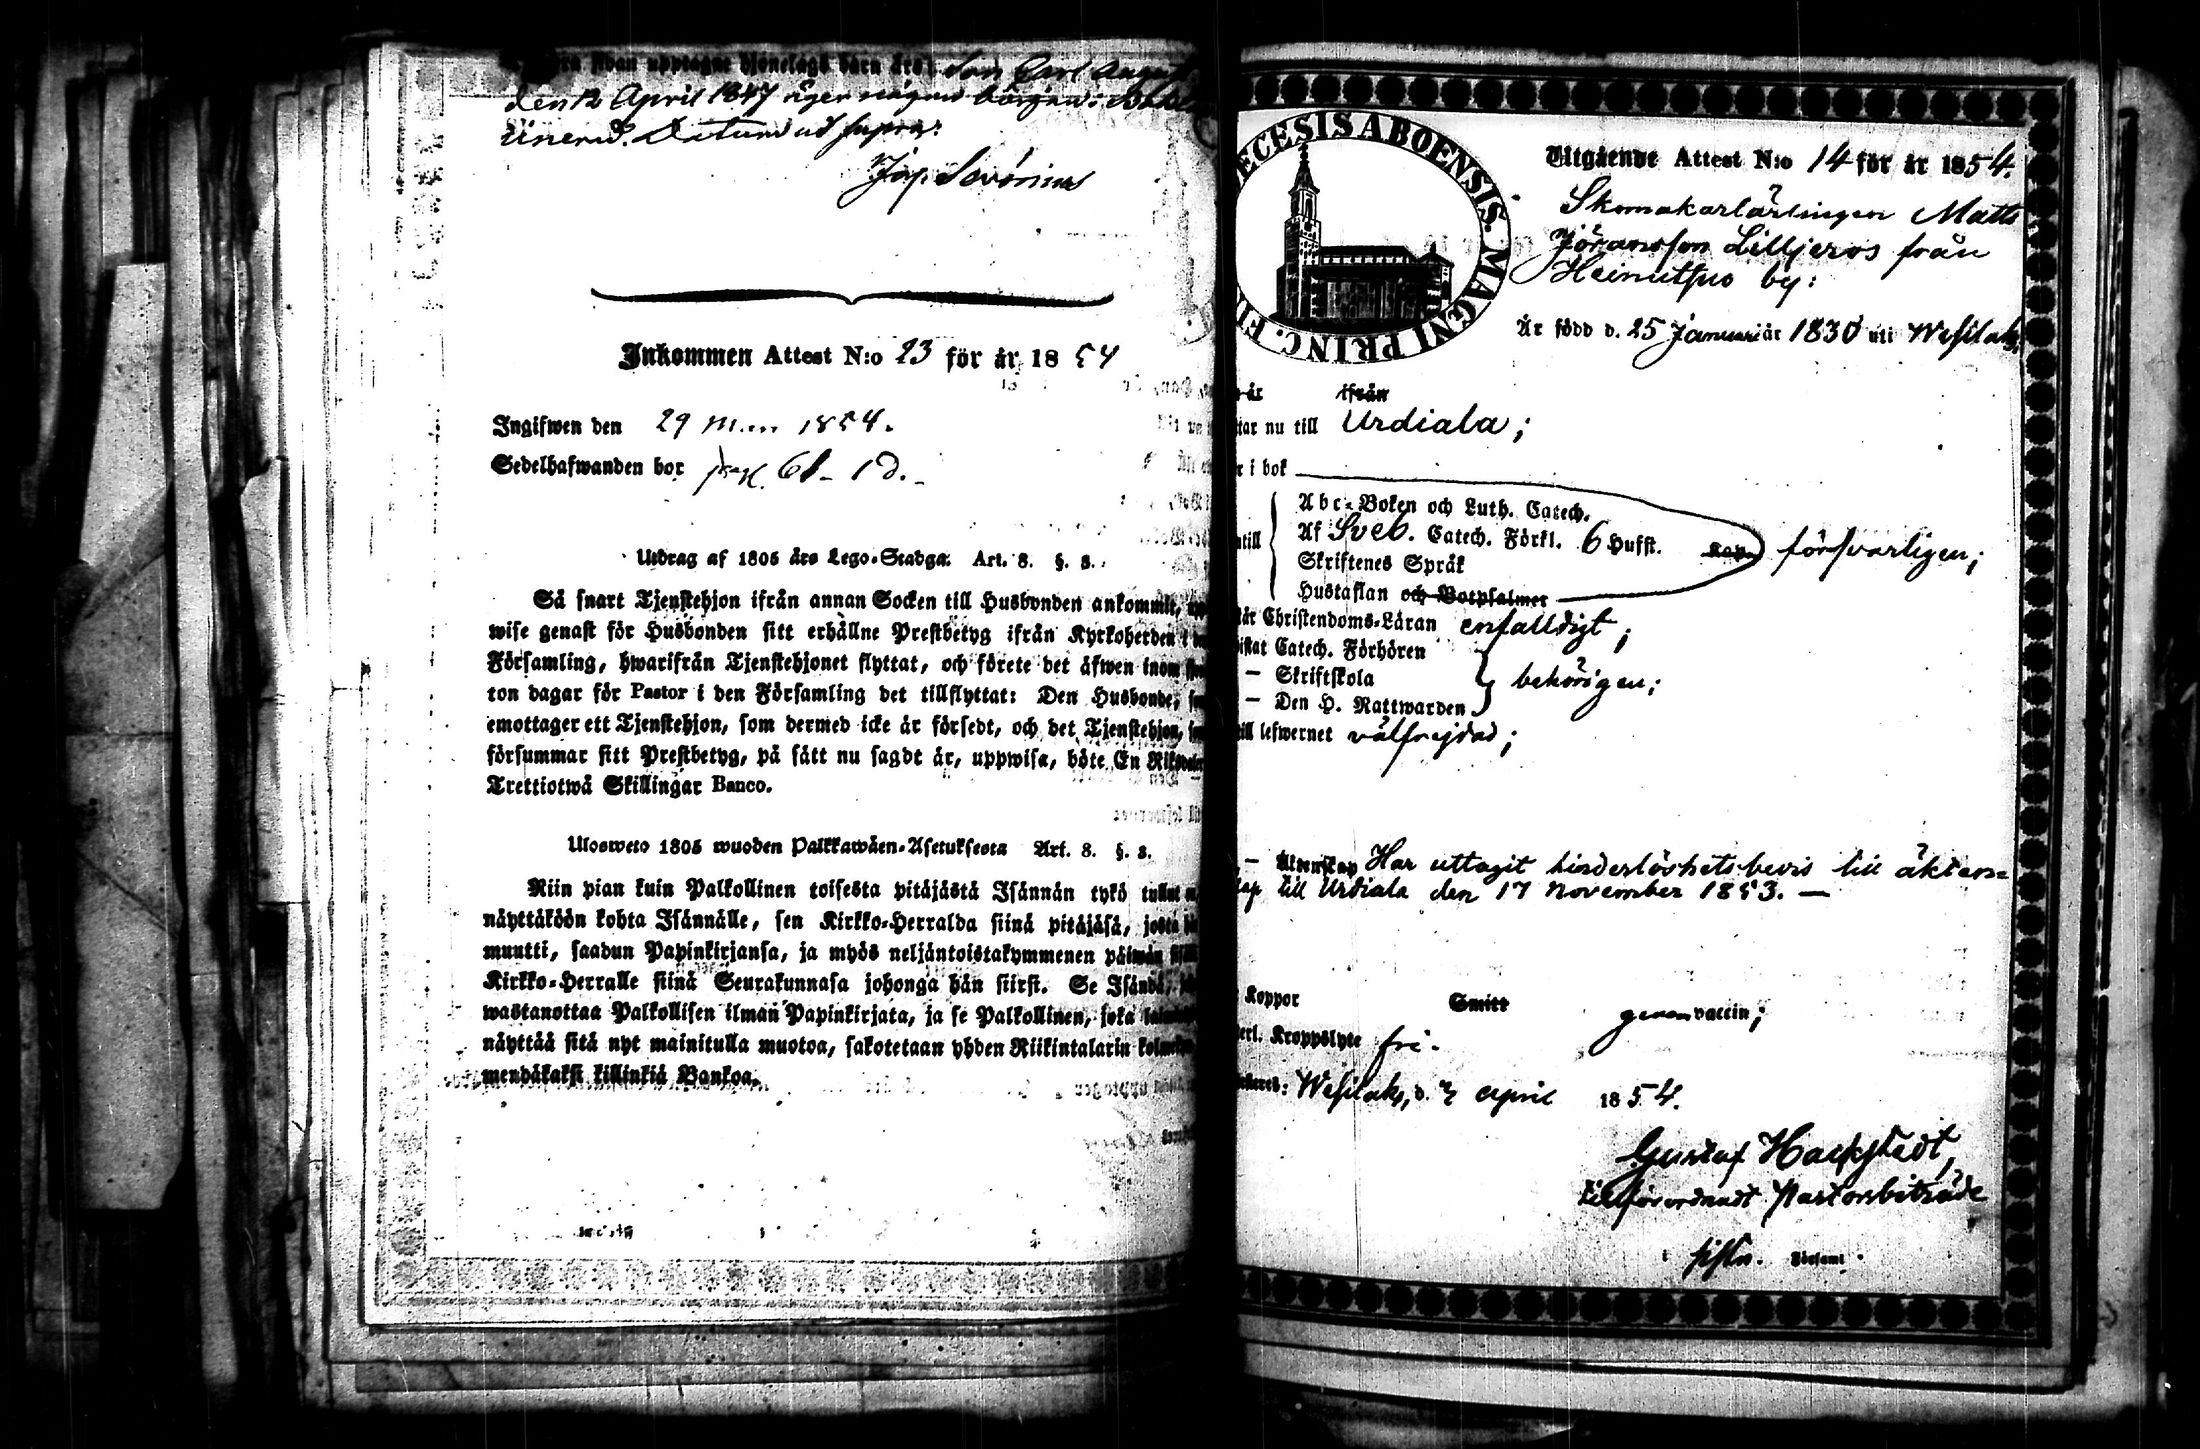 ofvan upptagne hjonelags barn äro: Son Carl August
den 12 April 1847 äger någon början i
Datum ut supra.
Inkommen Attest N:o 23 för år 1854
Ingifwen den 29 1854.
Sedelhafwanden bor pag. 61 -
Utdrag af 1805 års Lego-Stadga. Art. 8. §. 3.
Så snart Tjenstehjon ifrån annan Socken till Husbonden ankommit,
wise genast för Husbonden sitt erhållne Prestbetyg ifrån Kyrkoherden i
Församling, hwarifrån Tjenstehjonet flyttat, och förete det äfwen inom
ton dagar för Pastor i den Församling det tillflyttat: Den Husbonde,
emottager ett Tjenstehjon, som dermed icke är försedt, och det Tjenstehjon,
försummar sitt Prestbetyg, på sätt nu sagdt är, uppwisa, böte En Riksdaler
Trettiotwå Skillingar Banco.
Ulosweto 1805 wuoden Palkkawäen-Asetuksesta Art. 8. §. 3.
Niin pian kuin Palkollinen toisesta pitäjästä Isännän tykö tullut
näyttäköön kohta Isännälle, sen Kirkko-Herralda siinä pitäjäsä, josta
muutti, saadun Papinkirjansa, ja myös neljäntoistakymmenen päiwän
Kirkko-Herralle siinä Seurakunnasa johonga hän siirsi. Se Isändä,
wastanottaa Palkollisen ilman Papinkirjata, ja se Palkollinen, joka
näyttää sitä nyt mainitulla muotoa, sakotetaan yhden Riikintalarin
mendäkaksi killinkiä Bankoa.
ECESIS ABOENSIS. MAGNI PRINC. FI
Utgående Attest N:o 14 för år 1854.
Skomakarlärlingen Matts
Jöransson Lilljeros från
by:
Är född d. 25 Januarii år 1830 uti Wesilaks,
år ifrån
tar nu till Urdiala;
r i bok
Abc-Boken och Luth. Catech.
ntill Af Sveb. Catech. Förkl. 6 Hufst. Kap. försvarligen;
Skriftenes Språk
Hustaflan och Botpsalmer
tår Christendoms-Läran enfalldigt;
istat Catech. Förhören
— Skriftskola behörigen;
— Den H. Nattwarden
till lefwernet välfrejdad;
— Äktenskap Har uttagit hinderlöshetsbevis till äkten=
skap till Urdiala den 17 November 1853. —
Koppor Smitt genom vaccin;
terl. Kroppslyte fri.
Wesilaks, d. April 1854.
Gustaf Hackstedt,
tillförordnadt Pastorsbiträde
i Församl.